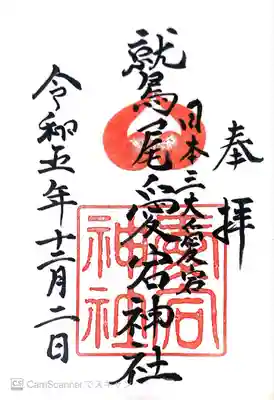 奉拝
日本三大愛宕
鷲尾愛宕神社
愛宕
神社
令和五年十二月二日
CS CamScanner でスキャン